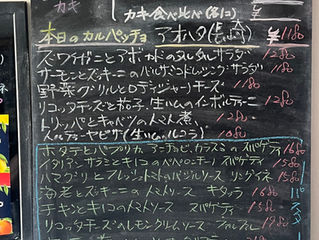 カキ
カキ食べ比べ(各1コ) ¥
本日のカルパッチョ アオハタ(長崎) ¥1180
ズワイガニとアボカドのタルタルサラダ 1280
サーモンとズッキーニのバルサミコドレッシングサラダ 1180
野菜グリルとロディジャーノチーズ 1180
リコッタチーズと茄子、生ハムのインボルティーニ 1280
トリッパとキャベツのトマト煮 1280
ズルチャピザ(生ハム、ルッコラ)
ホタテとパプリカ、アンチョビ、カラスミの スパゲティ 1680
イタリアンサラミとキノコのペペロンチーノ スパゲティ 1580
ハマグリとフレッシュトマトのバジルソース リングイネ 1580
海老とズッキーニのトマトソース キタッラ 1680
チキンとキノコのトマトソース スパゲティ 1580
リコッタチーズのレモンクリームソース